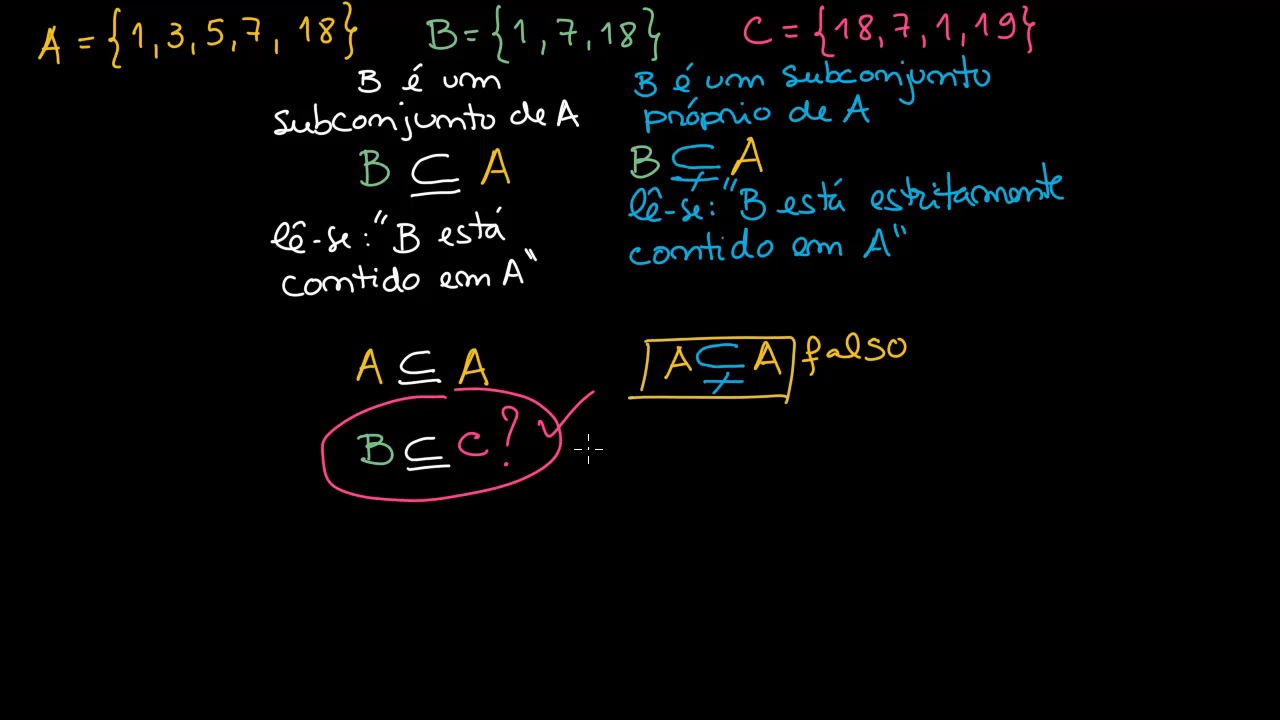 A = {1, 3, 5, 7, 18} B = {1, 7, 18} C = {18, 7, 1, 19}
B é um
subconjunto de A
B ⊆ A
lê-se: "B está
contido em A"
B é um subconjunto
próprio de A
B ⊊ A
lê-se: "B está estritamente
contido em A"
A ⊆ A
A ⊊ A falso
B ⊆ C?